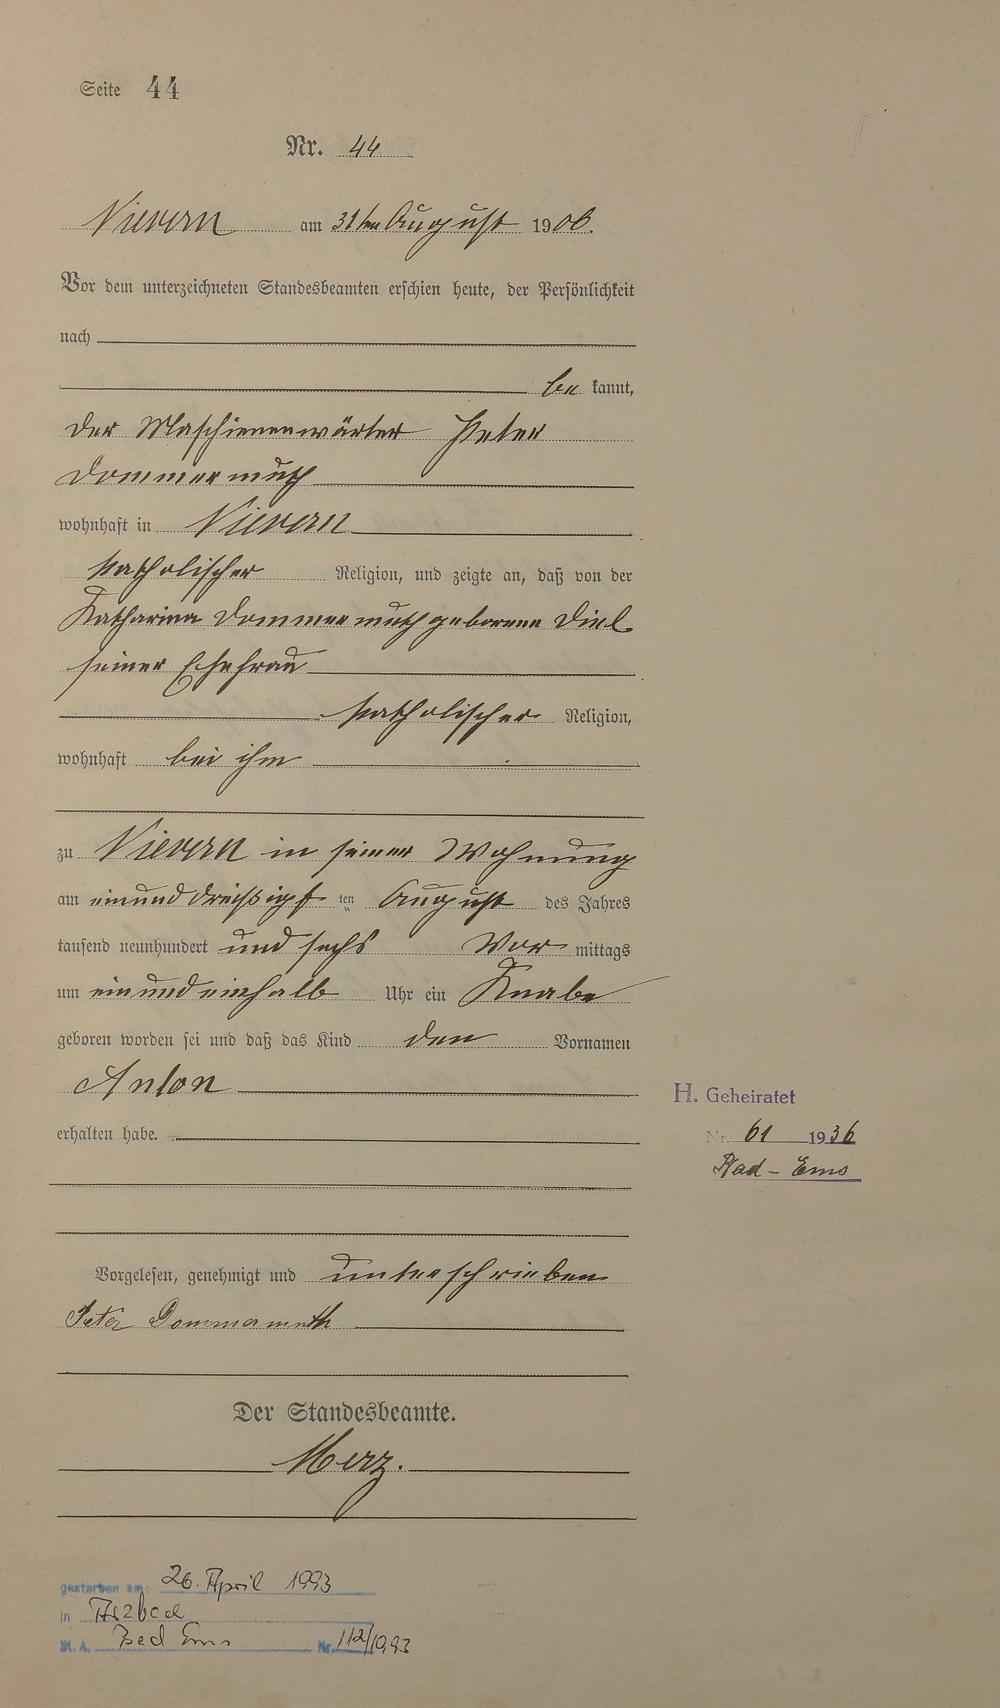 Seite 44
Nr. 44
Nievern am 31ten August 1906.
Vor dem unterzeichneten Standesbeamten erschien heute, der Persönlichkeit
nach
be kannt,
der Maschienenwärter Peter
Dommermuth
wohnhaft in Nievern
katholischer Religion, und zeigte an, daß von der
Katharina Dommermuth geborene Diel
seiner Ehefrau
katholischer Religion,
wohnhaft bei ihm
zu Nievern in seiner Wohnung
am einunddreißigst ten August des Jahres
tausend neunhundert und sechs Vor mittags
um einundeinhalb Uhr ein Knabe
geboren worden sei und daß das Kind den Vornamen
Anton
H. Geheiratet
erhalten habe.
Nr. 61 1936
Bad-Ems
Vorgelesen, genehmigt und unterschrieben
Peter Dommermuth
Der Standesbeamte.
Merz.
gestorben am: 26. April 1993
in Arzbach
St. A. Bad Ems Nr. 112/1993